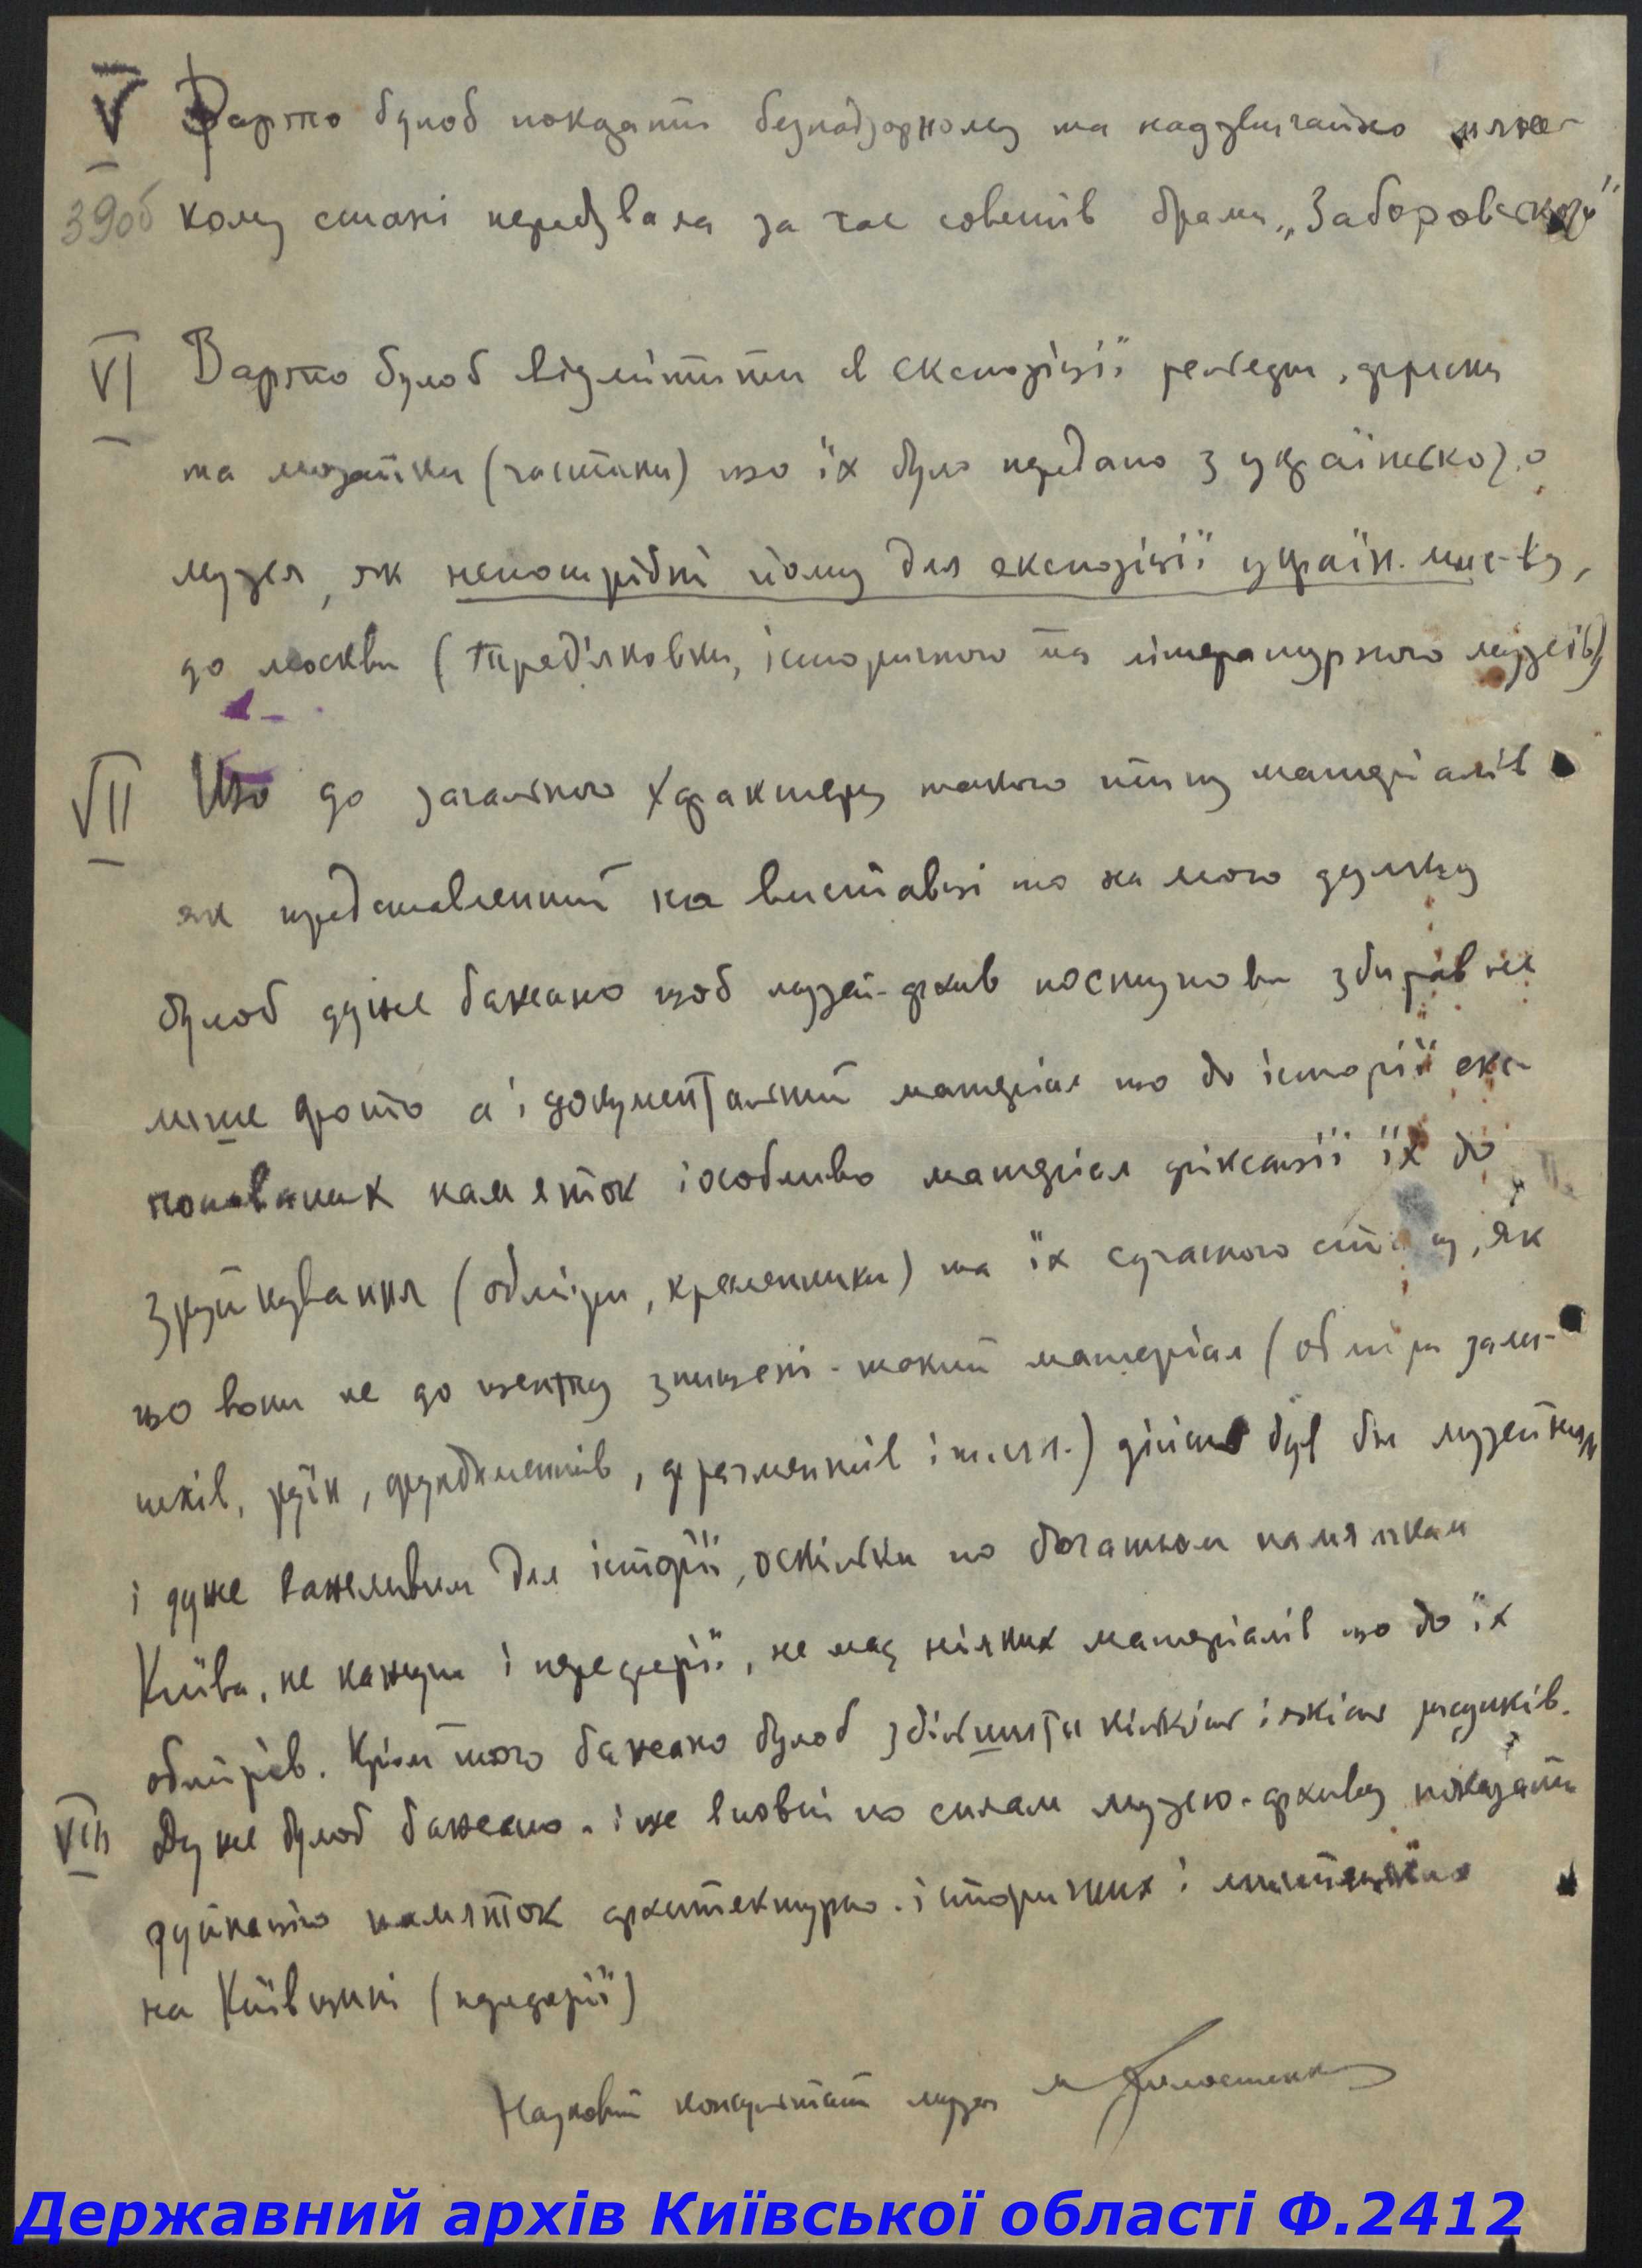 V Варто булоб показати безпадзорному та надзвичайно тяж-
39об кому стані перебувала за час совєтів брама „Заборовського"
VI Варто булоб відмітити в експозіції рельєфи, фрески
та мозаїки (частини) що їх було передано з українського
музея, як непотрібні йому для експозіції україн. мис-ва,
до москви (Трет'яковки, історичного та літературного музеїв)
VII Що до загального характеру такого типу матеріалів
як представленний на виставці то на мою думку
булоб дуже бажано щоб музей-архив поступово збирав не
лише фото а і документальний матеріал що до історії екс-
понованих памяток і особливо матеріал фіксації їх до
зруйнування (обміри, кресленники) та їх сучасного стану, як
що вони не до щенту знищені - такий матеріал (обміри зали-
шків, руїн, фундаментів, фрагментів і т.и.) дійсно був би музейним
і дуже важливим для історії, оскільки по багатьом памяткам
Київа, не кажучи і переферії, не має ніяких матеріалів що до їх
обмірів. Крім того бажано булоб збільшити кількість і якість
VIII Дуже булоб бажано - і це вповні по силам музею-архиву показати
руйнацію памяток архитектурно-історичних і мистецьких
на Київщині (переферії)
Науковий консультант музея
Державний архів Київської області Ф.2412